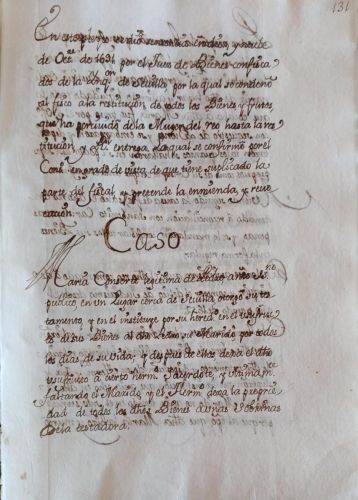 131
En este pleyto se dio sentencia en
de Oct.e de 1631 por el Juez de Bienes confisca
dos de la Inq.on de Sevilla por la qual se condenò
al fisco a la restitucion de todos los Bienes y frutos
que ha percivido de la Muger del reo hasta la res
titucion, y R.l entrega. La qual se confirmò por el
Cons.o en grado de vista de que tiene suplicado la
parte del fiscal y pretende la enmienda, y revo
cacion.
Caso
Maria Consorte legitima de Pedro,
en un Lugar cerca de Sevilla otorgò su tes
tamento, y en el instituye por su hered.o en el usufru
de sus Bienes al dho Pedro su Marido por todos
los dias de su Vida; y despues de ellos dexò el dho
usufructo à cierto herm.o Sacerdote, y
faltando el Marido, y el Herm.o dexa la proprie
dad de todos los dhos Bienes à unas Sobrinas
de la testadora.